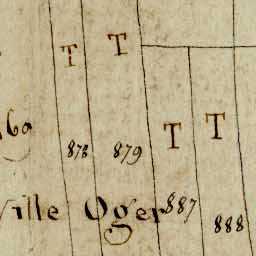 T T
T T
60
878 879
ville Oger 887
888